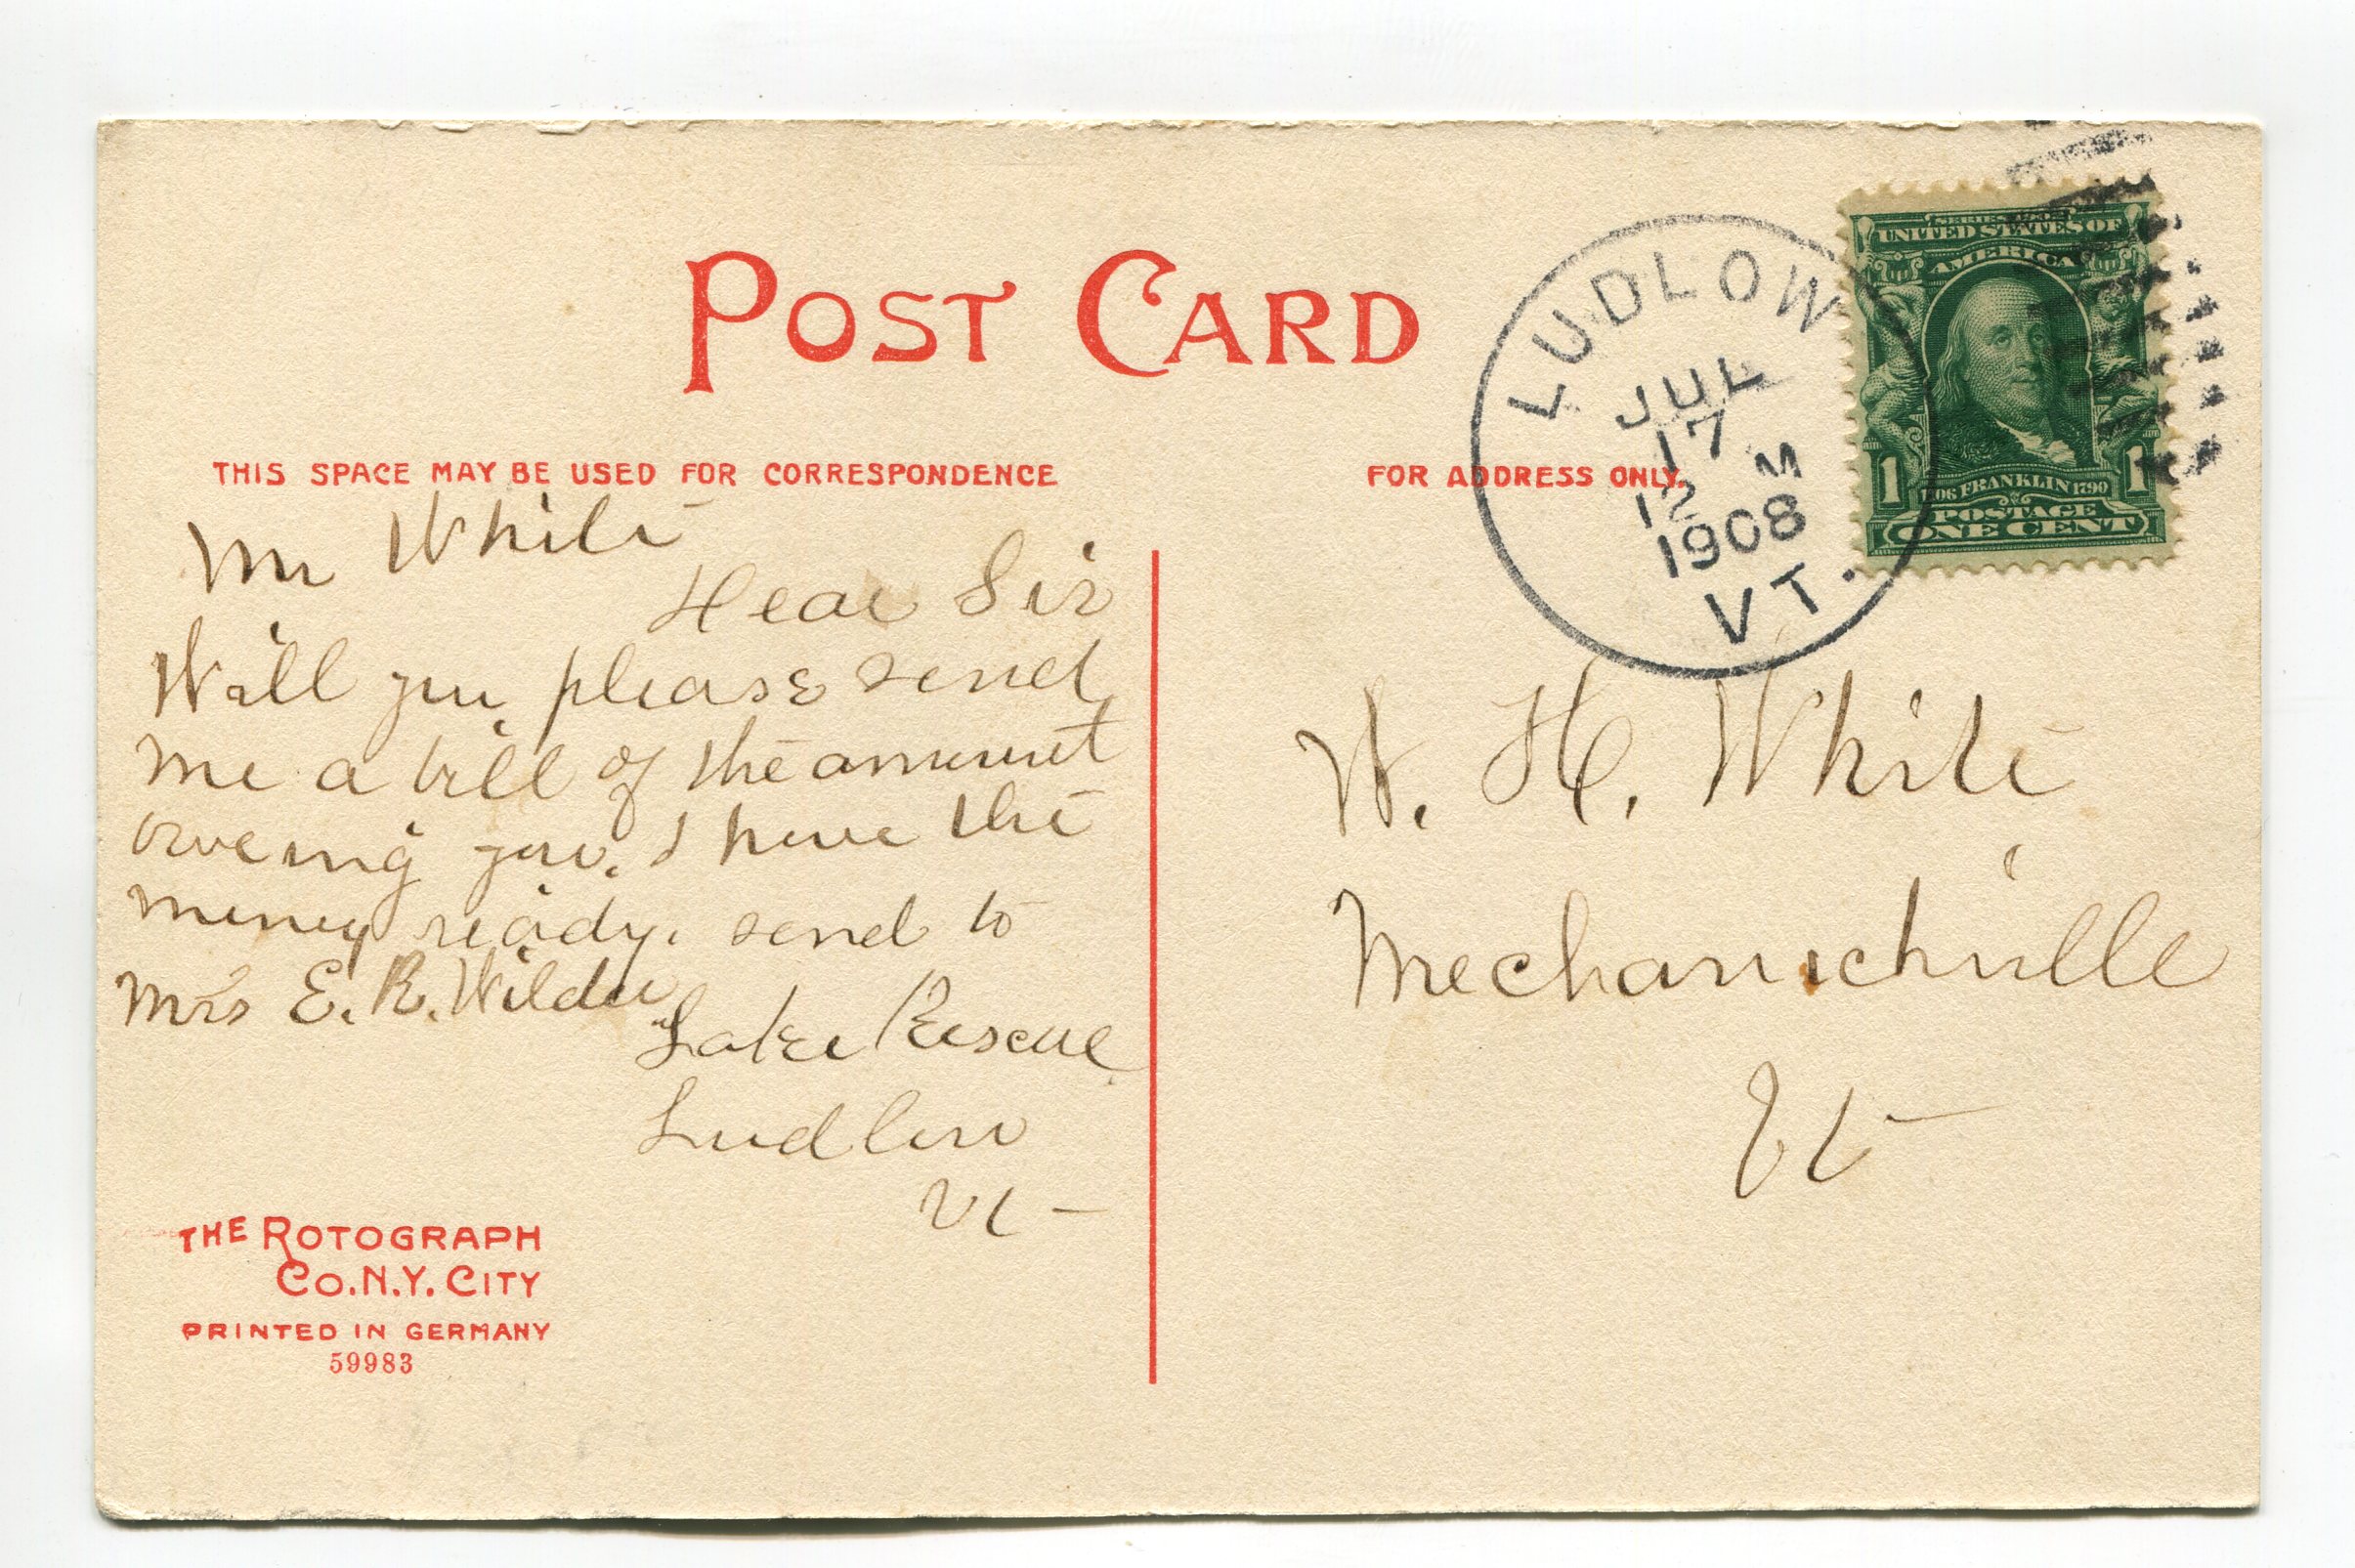 POST CARD
THIS SPACE MAY BE USED FOR CORRESPONDENCE
FOR ADDRESS ONLY.
LUDLOW
JUL
17
12 M
1908
VT.
UNITED STATES OF
AMERICA
1 1706 FRANKLIN 1790 1
POSTAGE
ONE CENT
Mr White
Dear Sir
Will you please send
me a bill of the amount
oweing you. I have the
money ready. send to
Mrs E. R. Wilder
Lake Rescue
Ludlow
Vt -
W. H. White
Mechanichville
Vt -
THE ROTOGRAPH
CO. N.Y. CITY
PRINTED IN GERMANY
59983